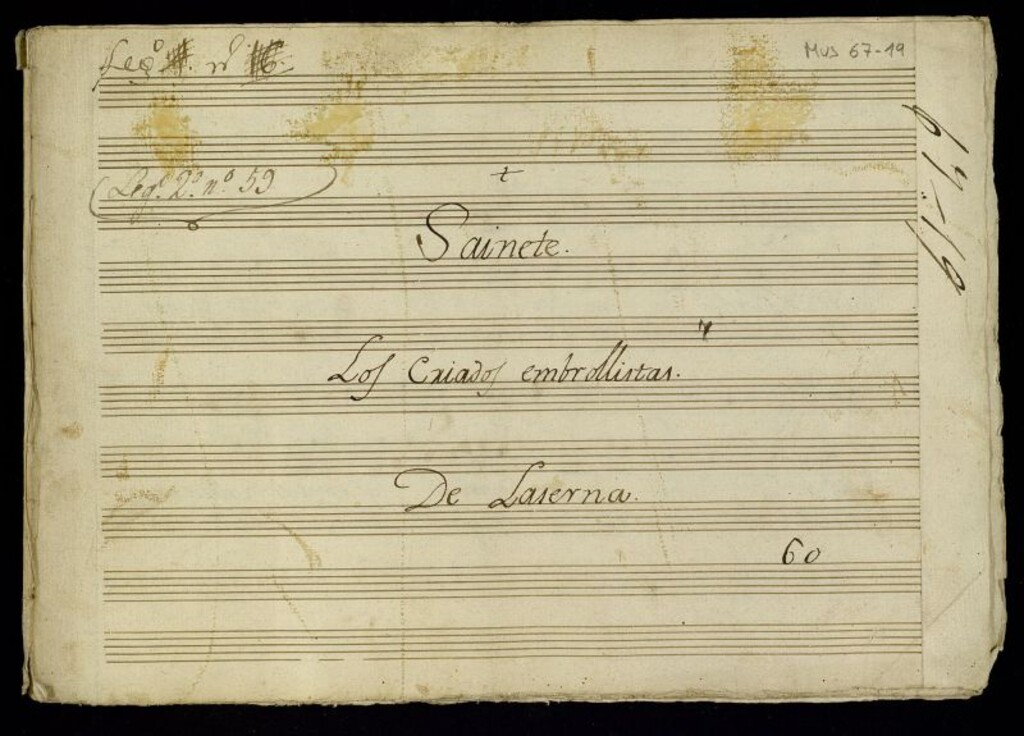 Leg.º nº
Mus 67-19
67-19
Leg.º 2.º n.º 59
Sainete.
Los Criados embrollistas.
De Laserna.
60